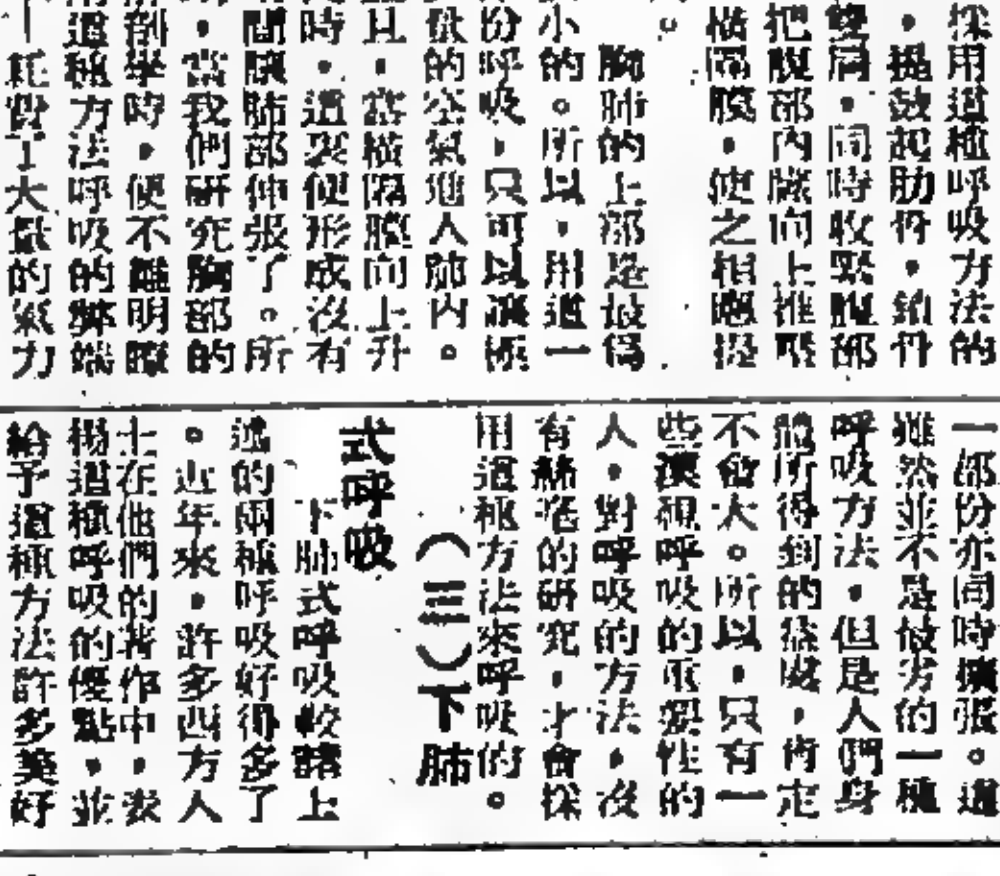 採用這種呼吸方法的
，提鼓起肋骨，鎖骨
雙肩，同時收緊腹部
把腹部內臟向上推壓
橫隔膜，使之相應提
。
胸肺的上部是最為
小的。所以，用這一
份呼吸，只可以讓極
的空氣進入肺內。
且，當橫隔膜向上升
時，這裏便形成沒有
間讓肺部伸張了。所
，當我們研究胸部的
剖學時，便不難明瞭
這種方法呼吸的弊端
一耗費了大量的氣力
一部份亦同時擴張。這
雖然並不是最劣的一種
呼吸方法，但是人們身
體所得到的益處，肯定
不會大。所以，只有一
些漠視呼吸的重要性的
人，對呼吸的方法，沒
有的研究，才會採
用這種方法來呼吸的。
（三）下肺
式呼吸
下肺式呼吸較諸上
述的兩種呼吸好得多了
。近年來，許多西方人
士在他們的著作中，表
揚這種呼吸的優點，並
給予這種方法許多美好